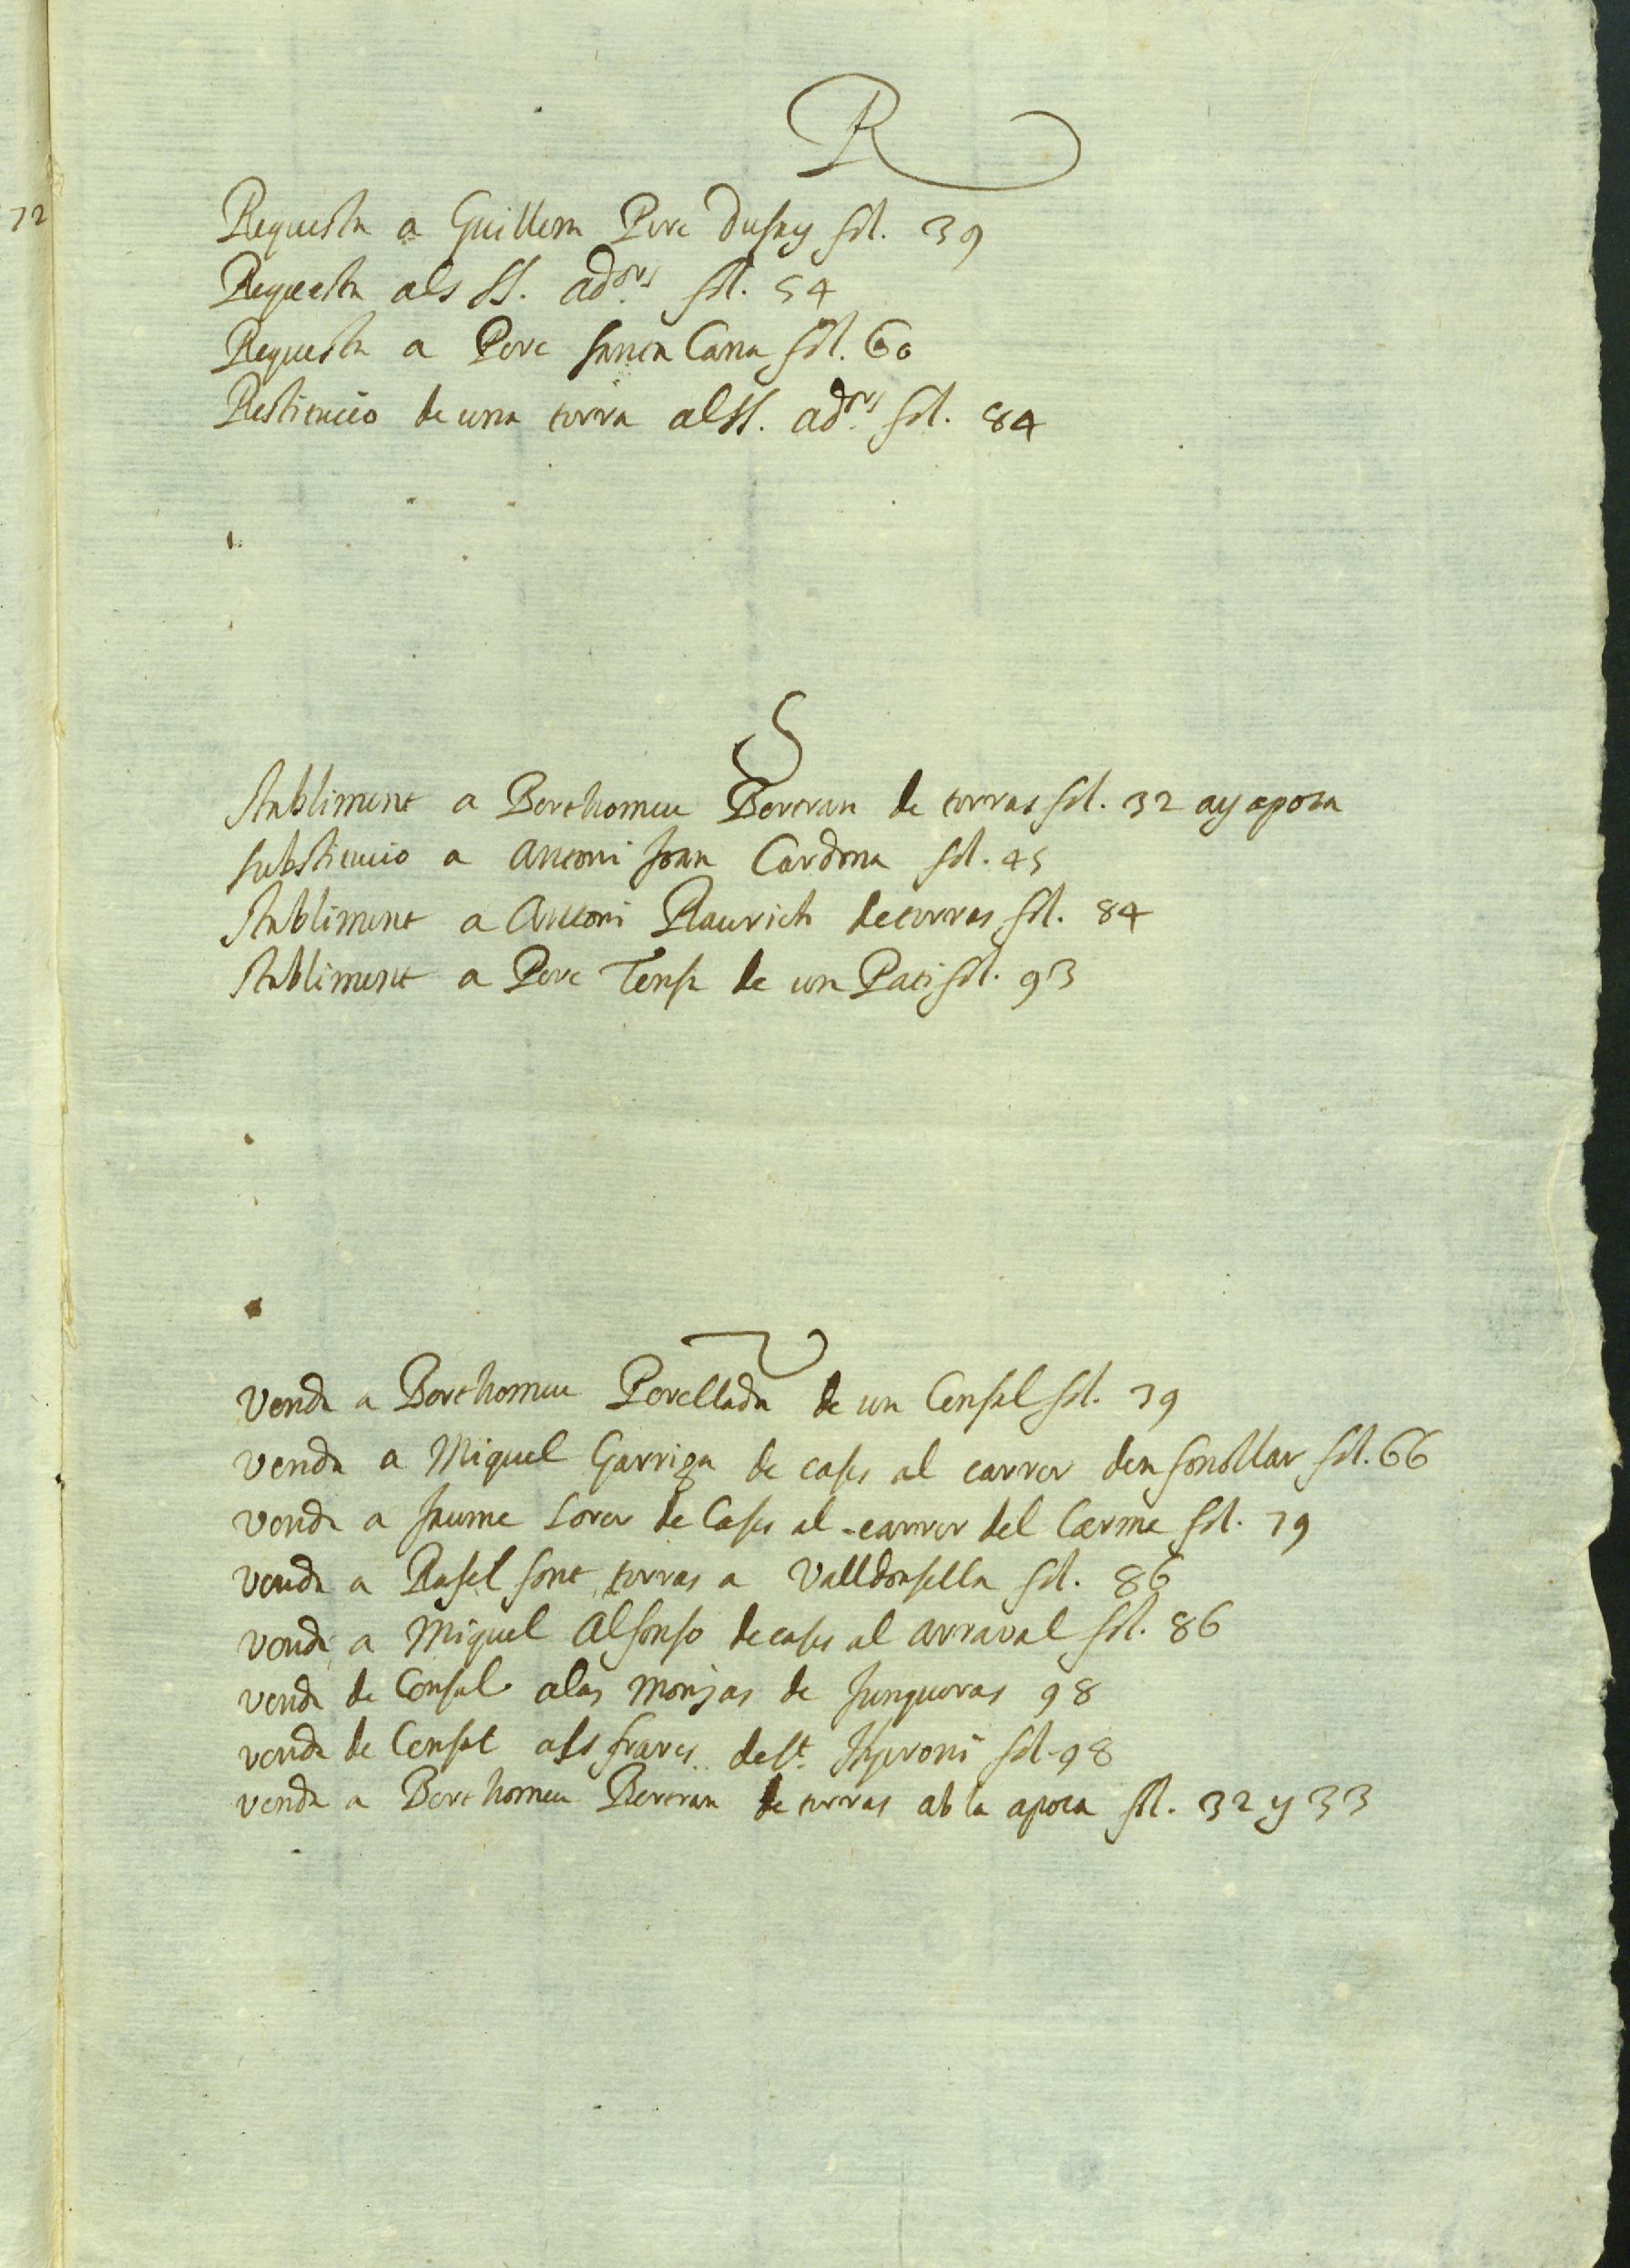 72
R
Requesta a Guillem Pere Dusay fol. 39
Requesta als SS. ad.ors fol. 54
Requesta a Pere Santa Cana fol. 60
Restitucio de una terra als SS. ad.ors fol. 84
S
Stabliment a Berthomeu Bertran de terras fol. 32 ay apoca
substitucio a Antoni Joan Cardona fol. 45
Stabliment a Antoni Raurich de terras fol. 84
Stabliment a Pere Tensa de un Pati fol. 93
V
Venda a Berthomeu Perellada de un Censal fol. 39
venda a Miquel Garriga de cases al carrer den fonollar fol. 66
venda a Jaume Lorer de Cases al carrer del Carme fol. 79
venda a Rafel font terras a Valldonsella fol. 86
venda a Miquel Alfonso de cases al arraval fol. 86
venda de Censal alas Monjas de Junqueras 98
venda de Censal als frares de St. Hyeroni fol. 98
venda a Berthomeu Bertran de terras ab la apoca fol. 32 y 33